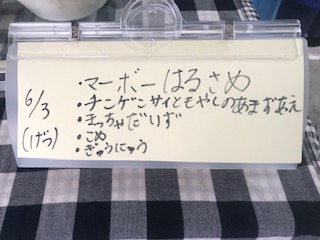 6/3
(げつ)
・マーボーはるさめ
・チンゲンサイともやしのあまずあえ
・まっちゃだいず
・こめ
・ぎゅうにゅう